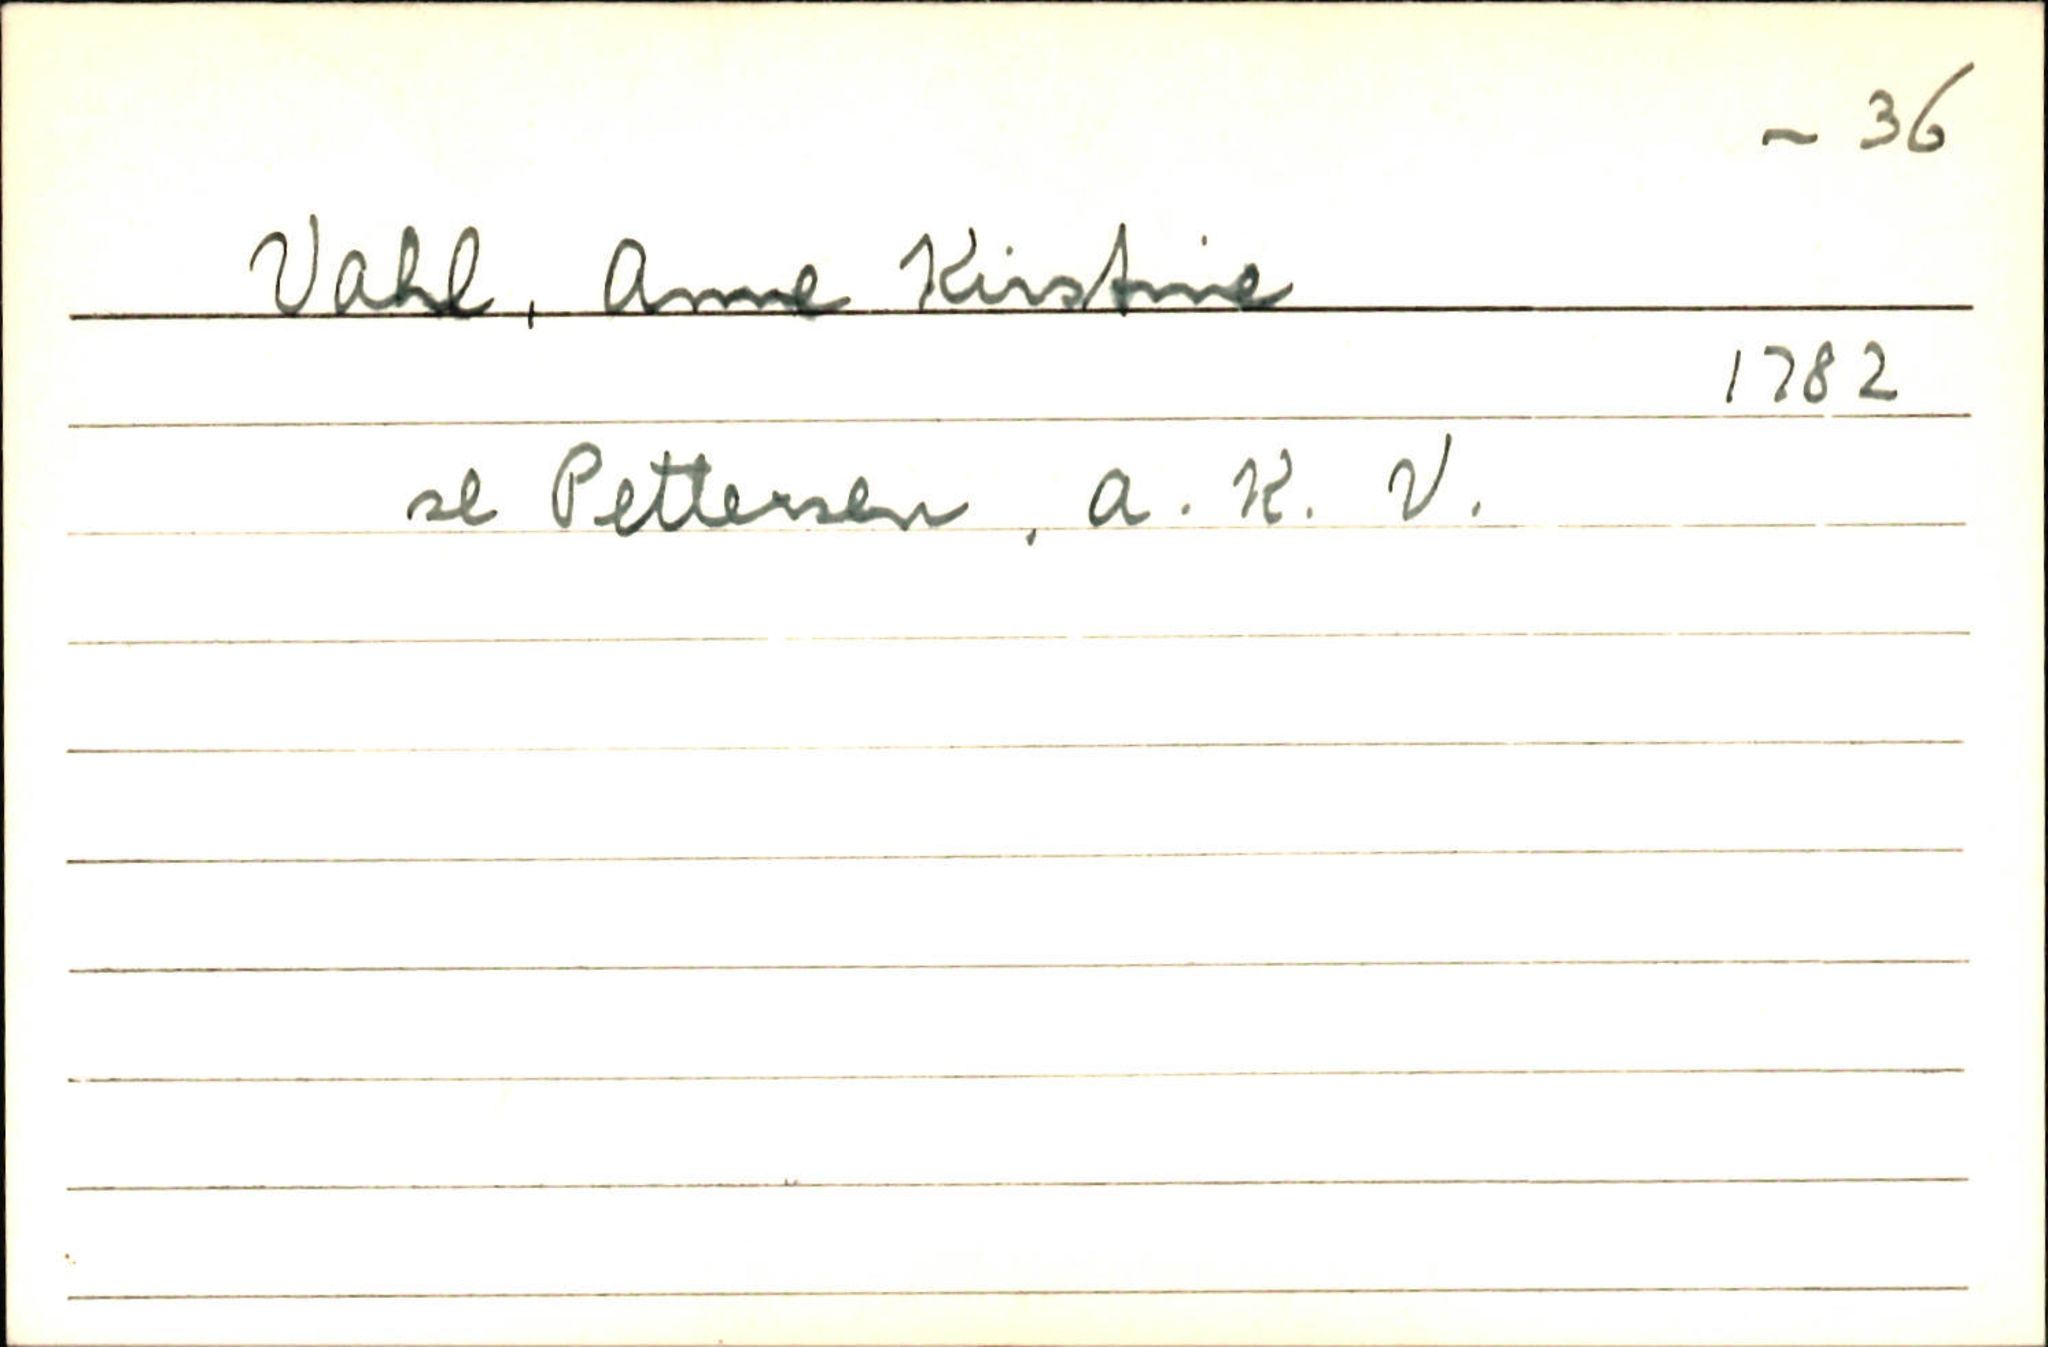 ~ 36
Vahl, Anne Kirstine
1782
se Pettersen, A. K. V.